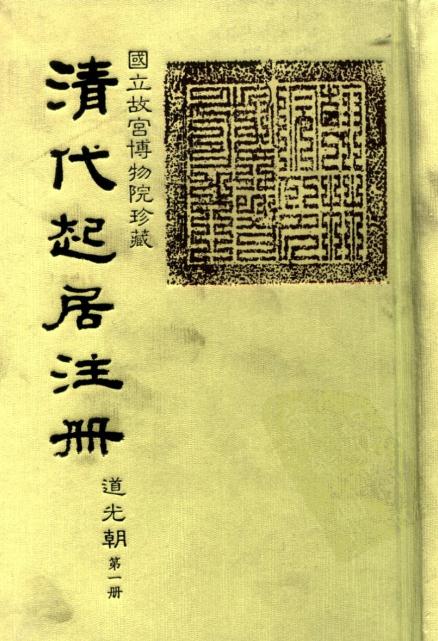 國立故宮博物院珍藏
清代起居注冊
道光朝
第一册